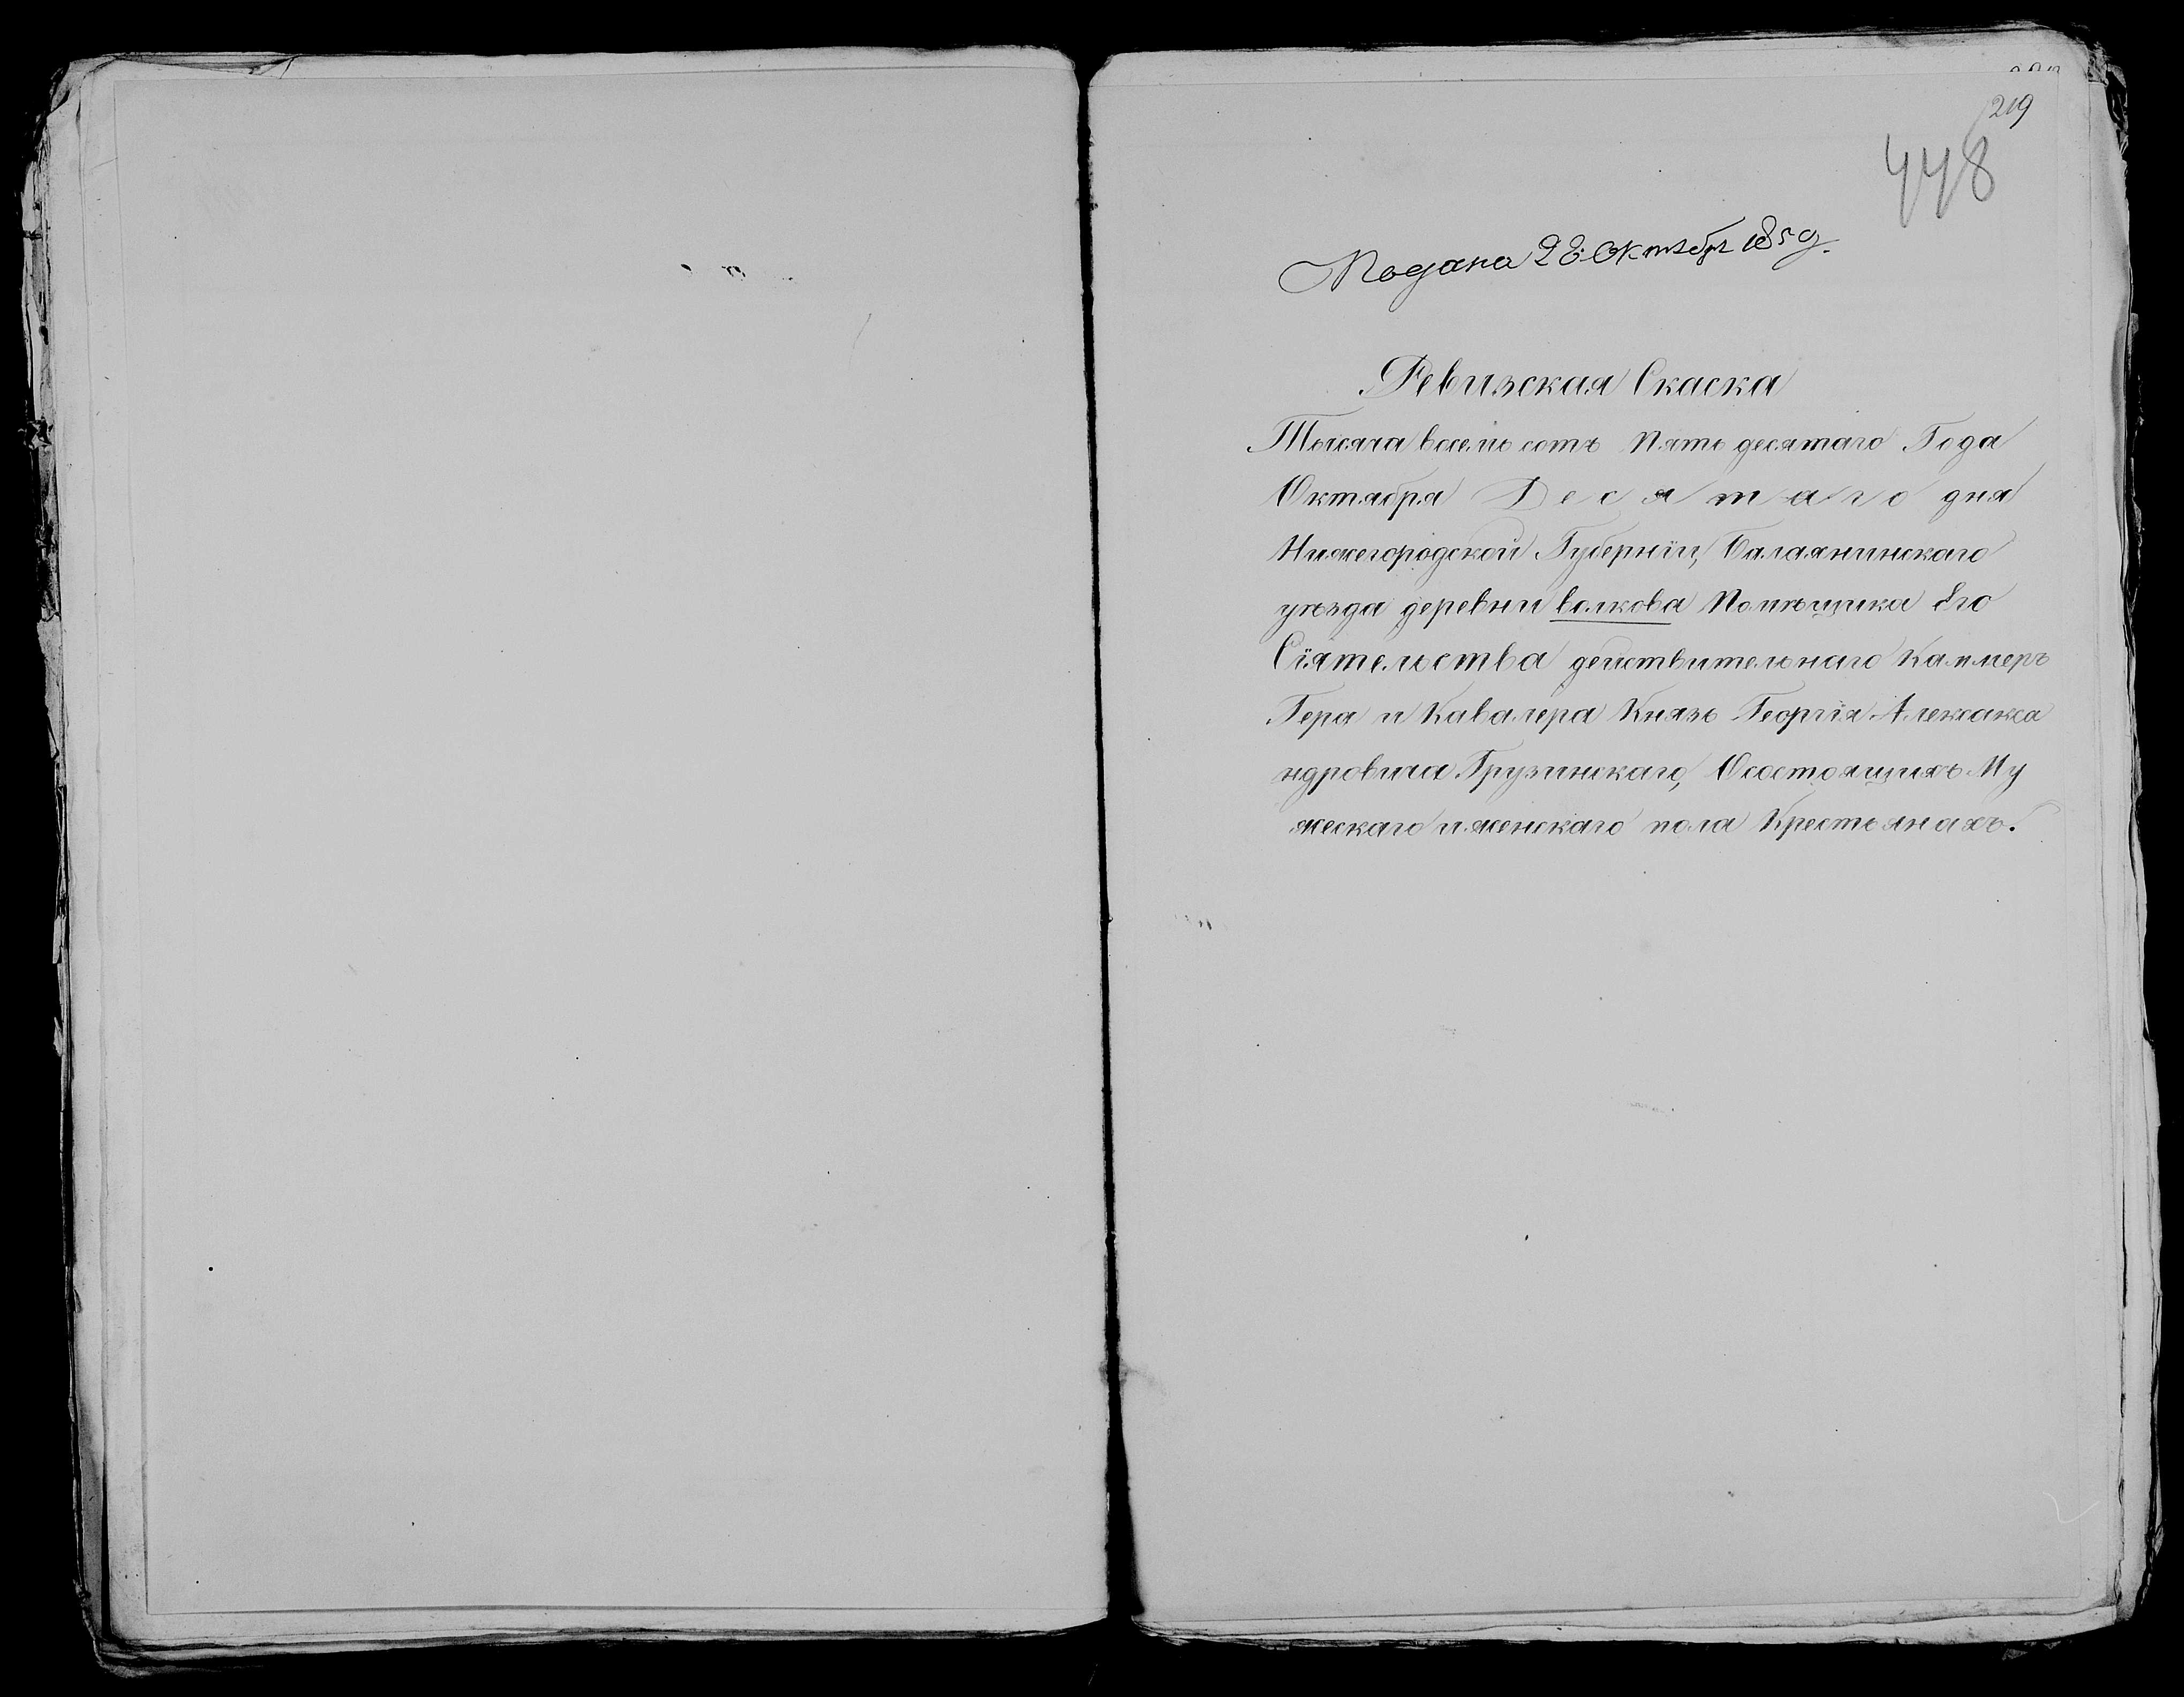 219
448
Подана 28 Октября 1850 г.
Ревизская Скаска
Тысяча восемь сотъ Пять десятаго Года
Октября Десятаго дня
Нижегородской Губернїи, Балахнинскаго
уѣзда деревни волкова Помѣщика Его
Сїятельства действительнаго Каммеръ
Гера и Кавалера Князь Георгїя Алексакса
ндровича Грузинскаго, Осостоящихъ Му
жескаго и женскаго пола Крестьянахъ.